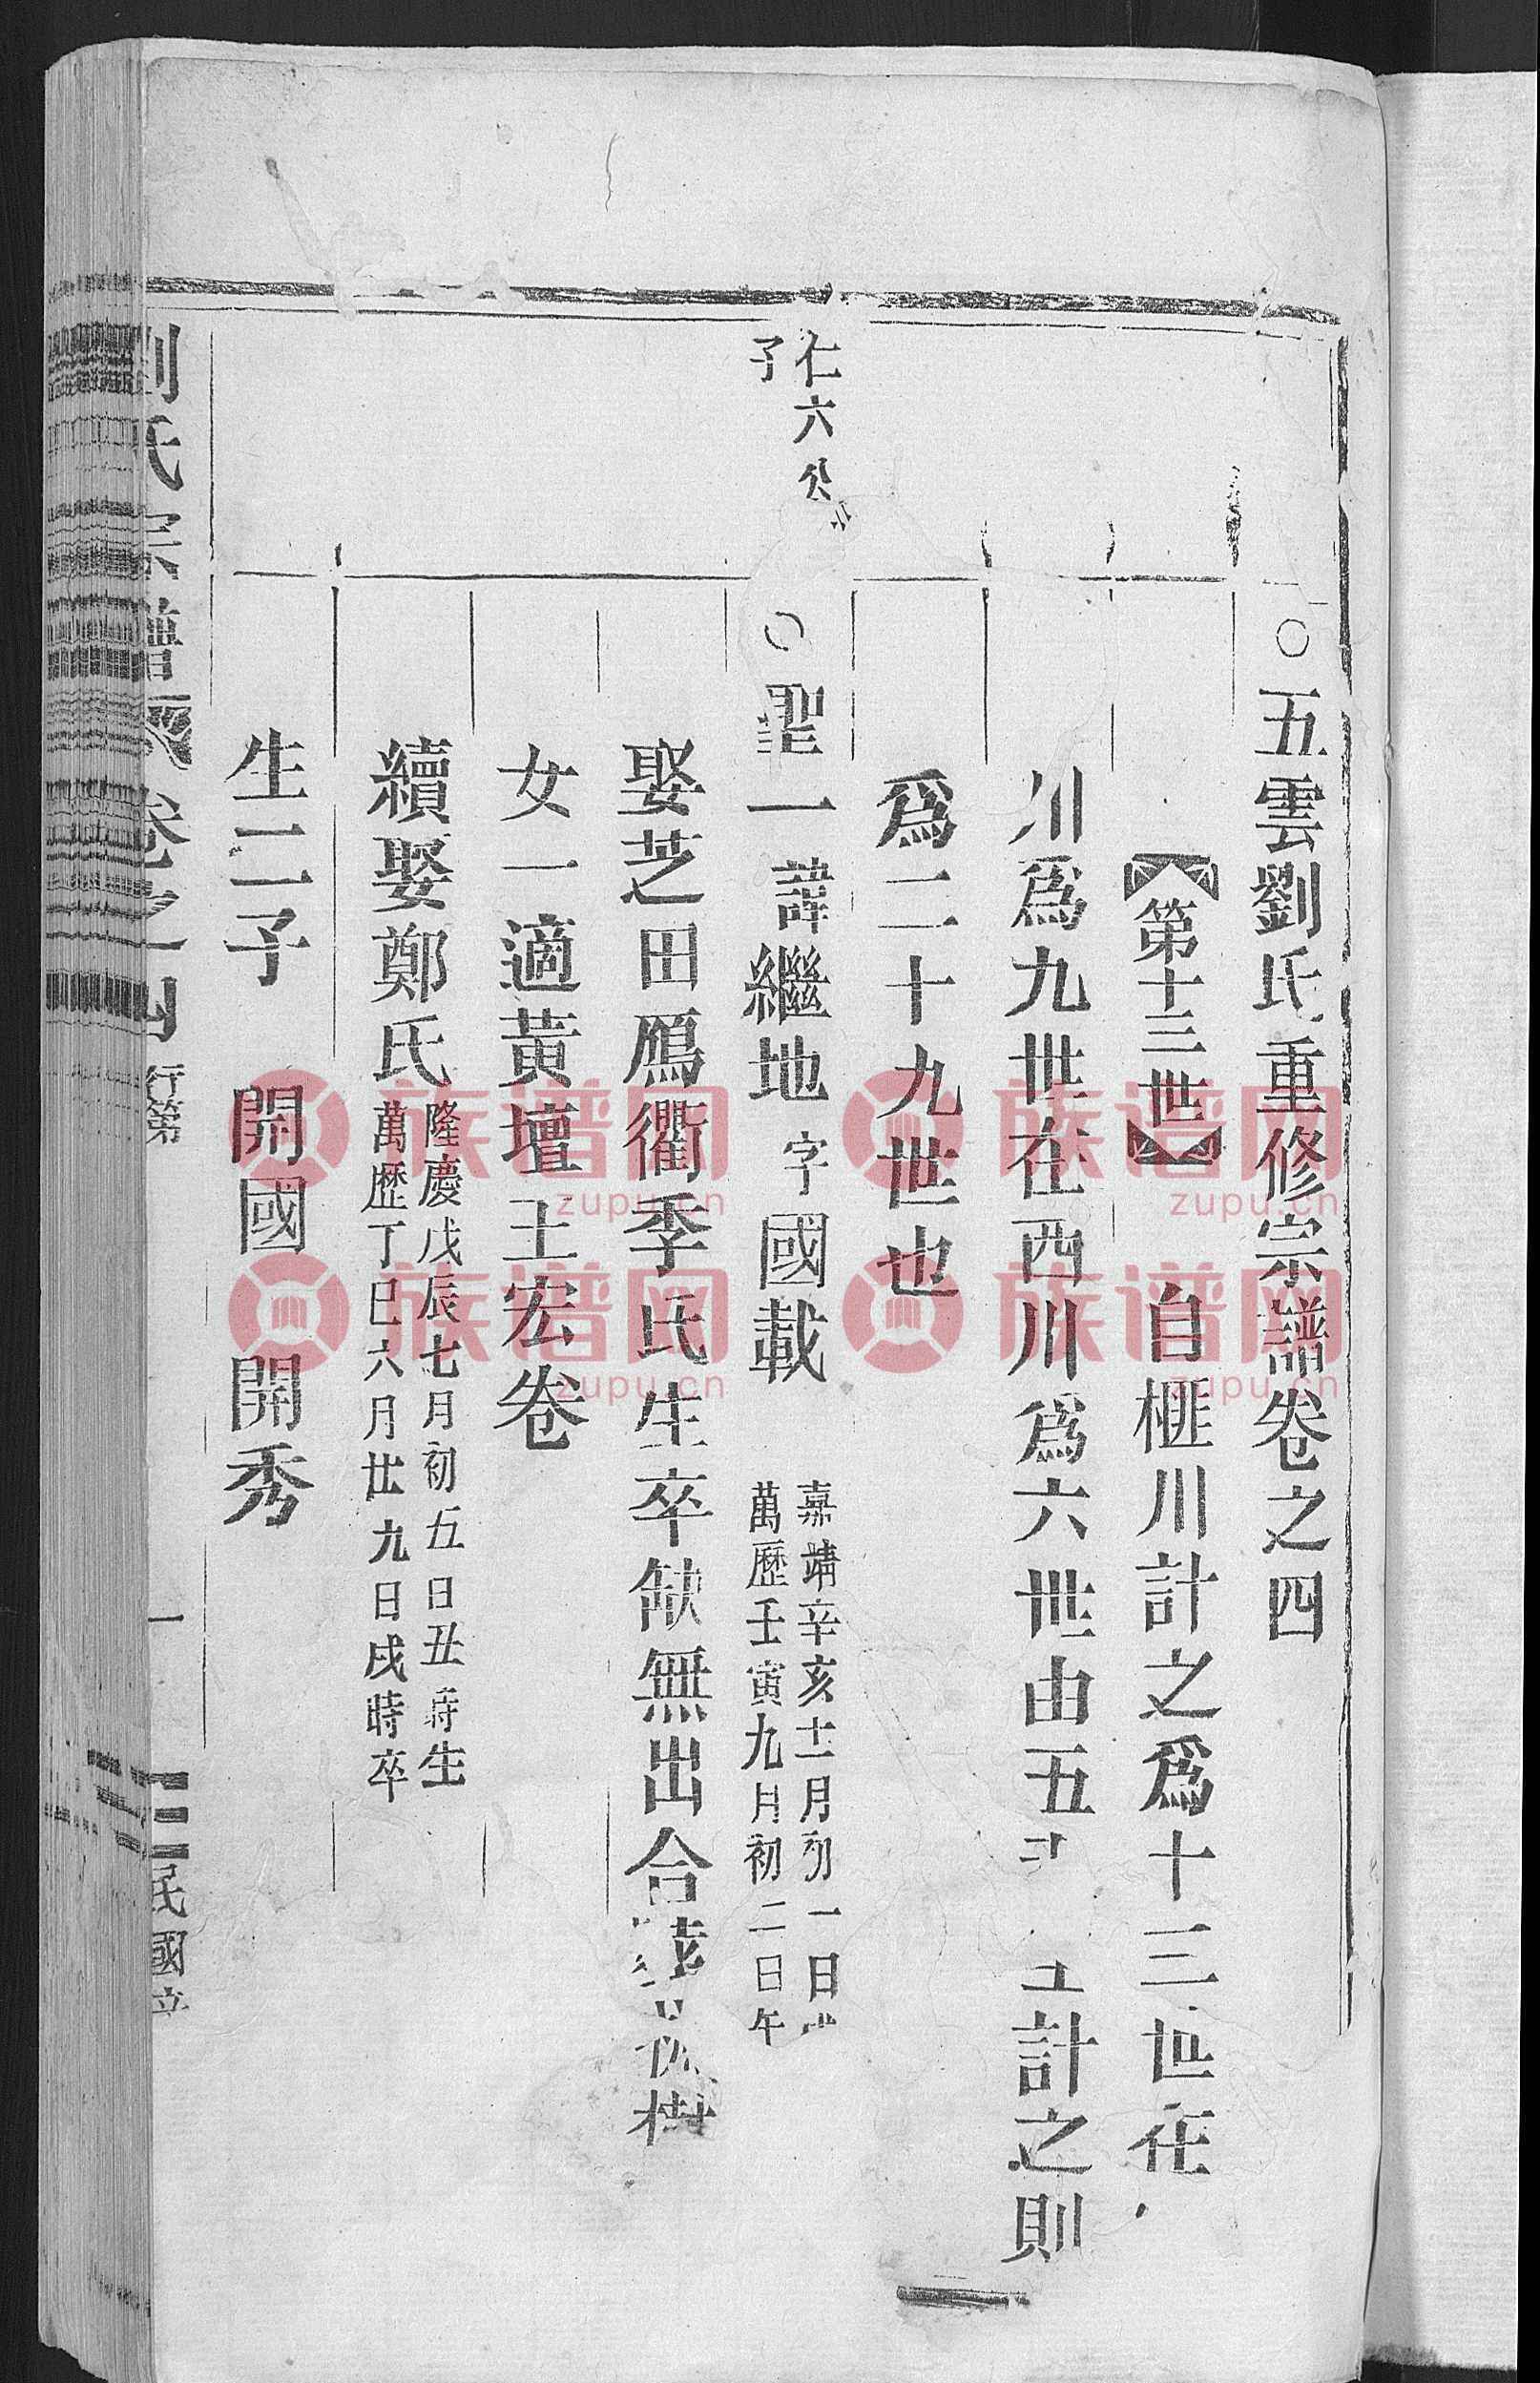 ○五雲劉氏重修宗譜卷之四
【第十三世】 自榧川計之爲十三世在
川爲九世在西川爲六世由五 計之則
爲二十九世也
仁六公
子
○聖一 諱繼地 字國載
嘉靖辛亥十二月初一日
萬歷壬寅九月初二日午
娶芝田鴈衢季氏生卒缺無出合 樹
女一適黃壇王宏卷
續娶鄭氏
隆慶戊辰七月初五日丑時生
萬歷丁巳六月廿九日戌時卒
生二子 開國 開秀
劉氏宗譜 卷之四 行第 一 民國
族谱网 zupu.cn
族谱网 zupu.cn
族谱网 zupu.cn
族谱网 zupu.cn